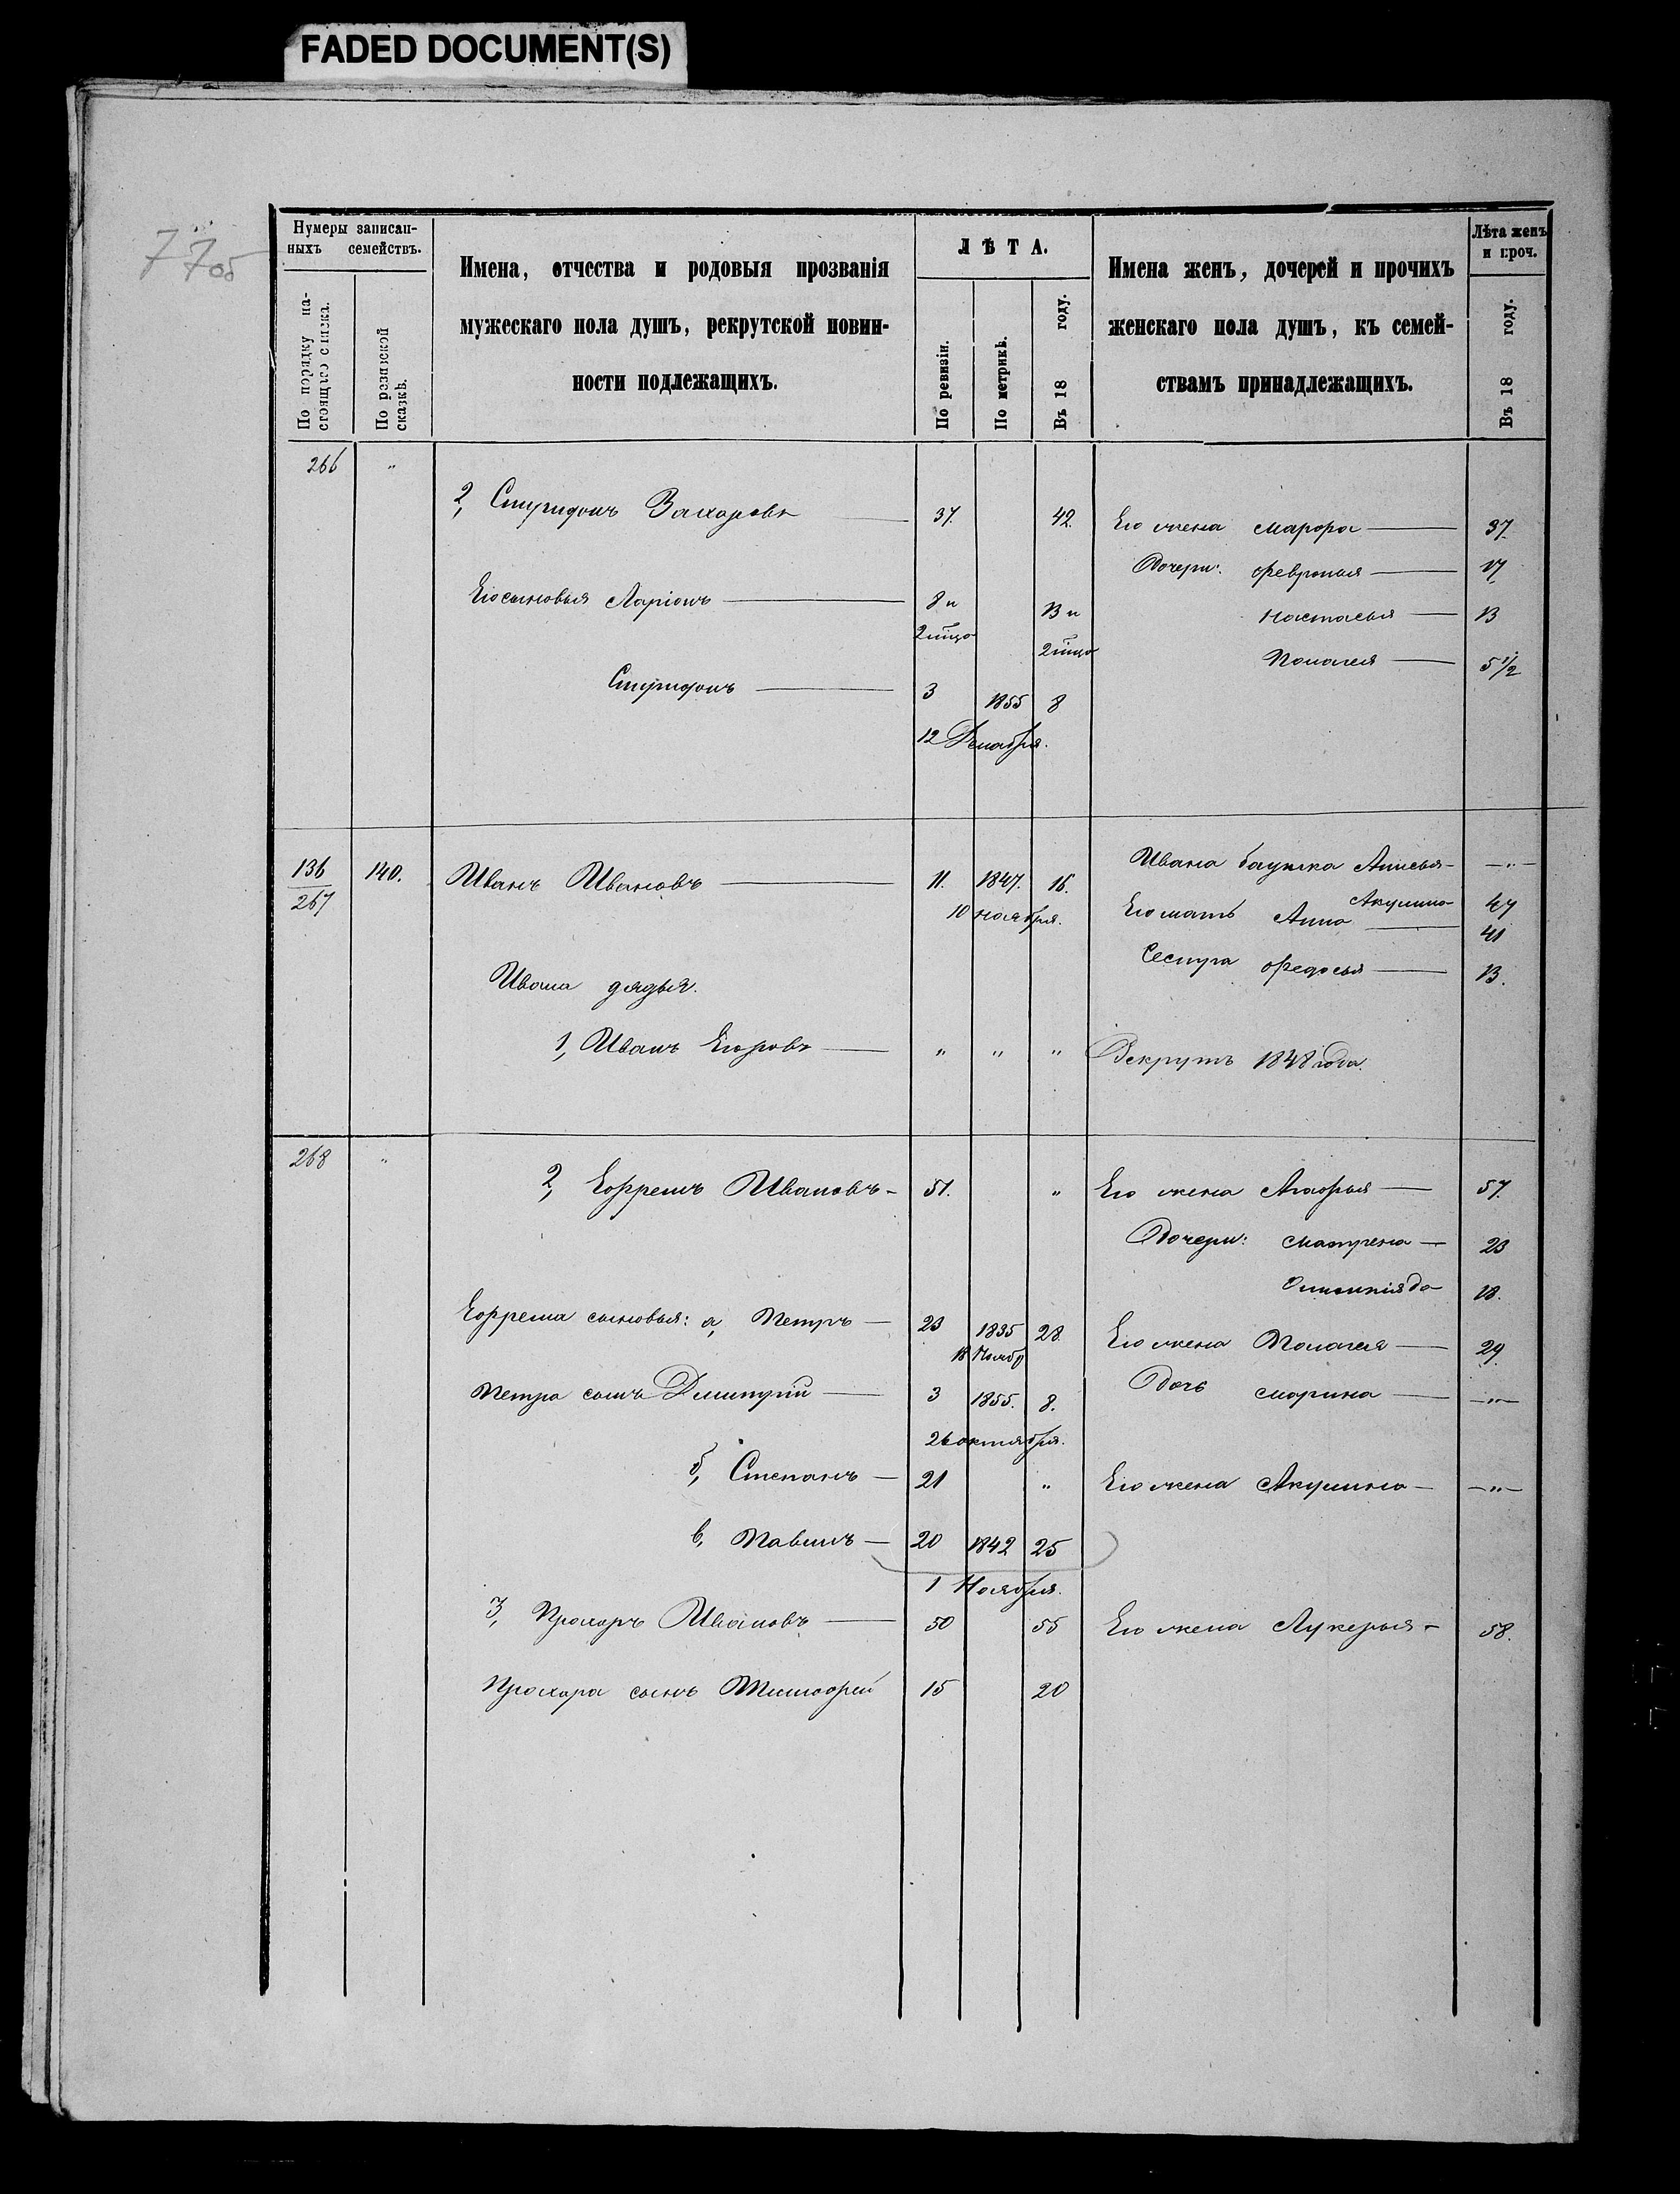 FADED DOCUMENT(S)
77об
Нумеры записан-
ныхъ семействъ.
По порядку на-
стоящаго списка.
По ревизской
сказкѣ.
Имена, отчества и родовыя прозванія
мужескаго пола душъ, рекрутской повин-
ности подлежащихъ.
ЛѢТА.
По ревизіи.
По метрикѣ.
Въ 18 году.
Имена женъ, дочерей и прочихъ
женскаго пола душъ, къ семей-
ствамъ принадлежащихъ.
Лѣта женъ
и проч.
Въ 18 году.
266 "
2, Спиридонъ Захаровъ — 37. 42. Его жена Марфа — 37.
Дочери: Февронья — 17
Его сыновья Ларіонъ — 8 и 13 и Настасья — 13
Пелагея — 5 1/2
Спиридонъ — 3 1855 8
12 Декабря.
136 140. Иванъ Ивановъ — 11. 1847. 16. Ивана бабушка Анисья — "
267 10 ноября. Акулина 47
Его мать Анна — 41
Сестра Федосья — 13.
Ивана дядья.
1, Иванъ Егоровъ — " " " Рекрутъ 1848 года.
268 "
2, Ефремъ Ивановъ — 51. " Его жена Агафья — 57.
Дочери: Матрена — 23
18.
Ефрема сыновья: а, Петръ — 23 1835 28. Его жена Пелагея — 29.
18 Ноябр
Петра сынъ Дмитрій — 3 1855. 8. Дочь Марина — "
26 октября.
б, Степанъ — 21 " Его жена Акулина — "
в, Павелъ — 20 1842 25
1 Ноября.
3, Прохоръ Ивановъ — 50 55 Его жена Лукерья — 58.
Прохора сынъ Тимофей 15 20